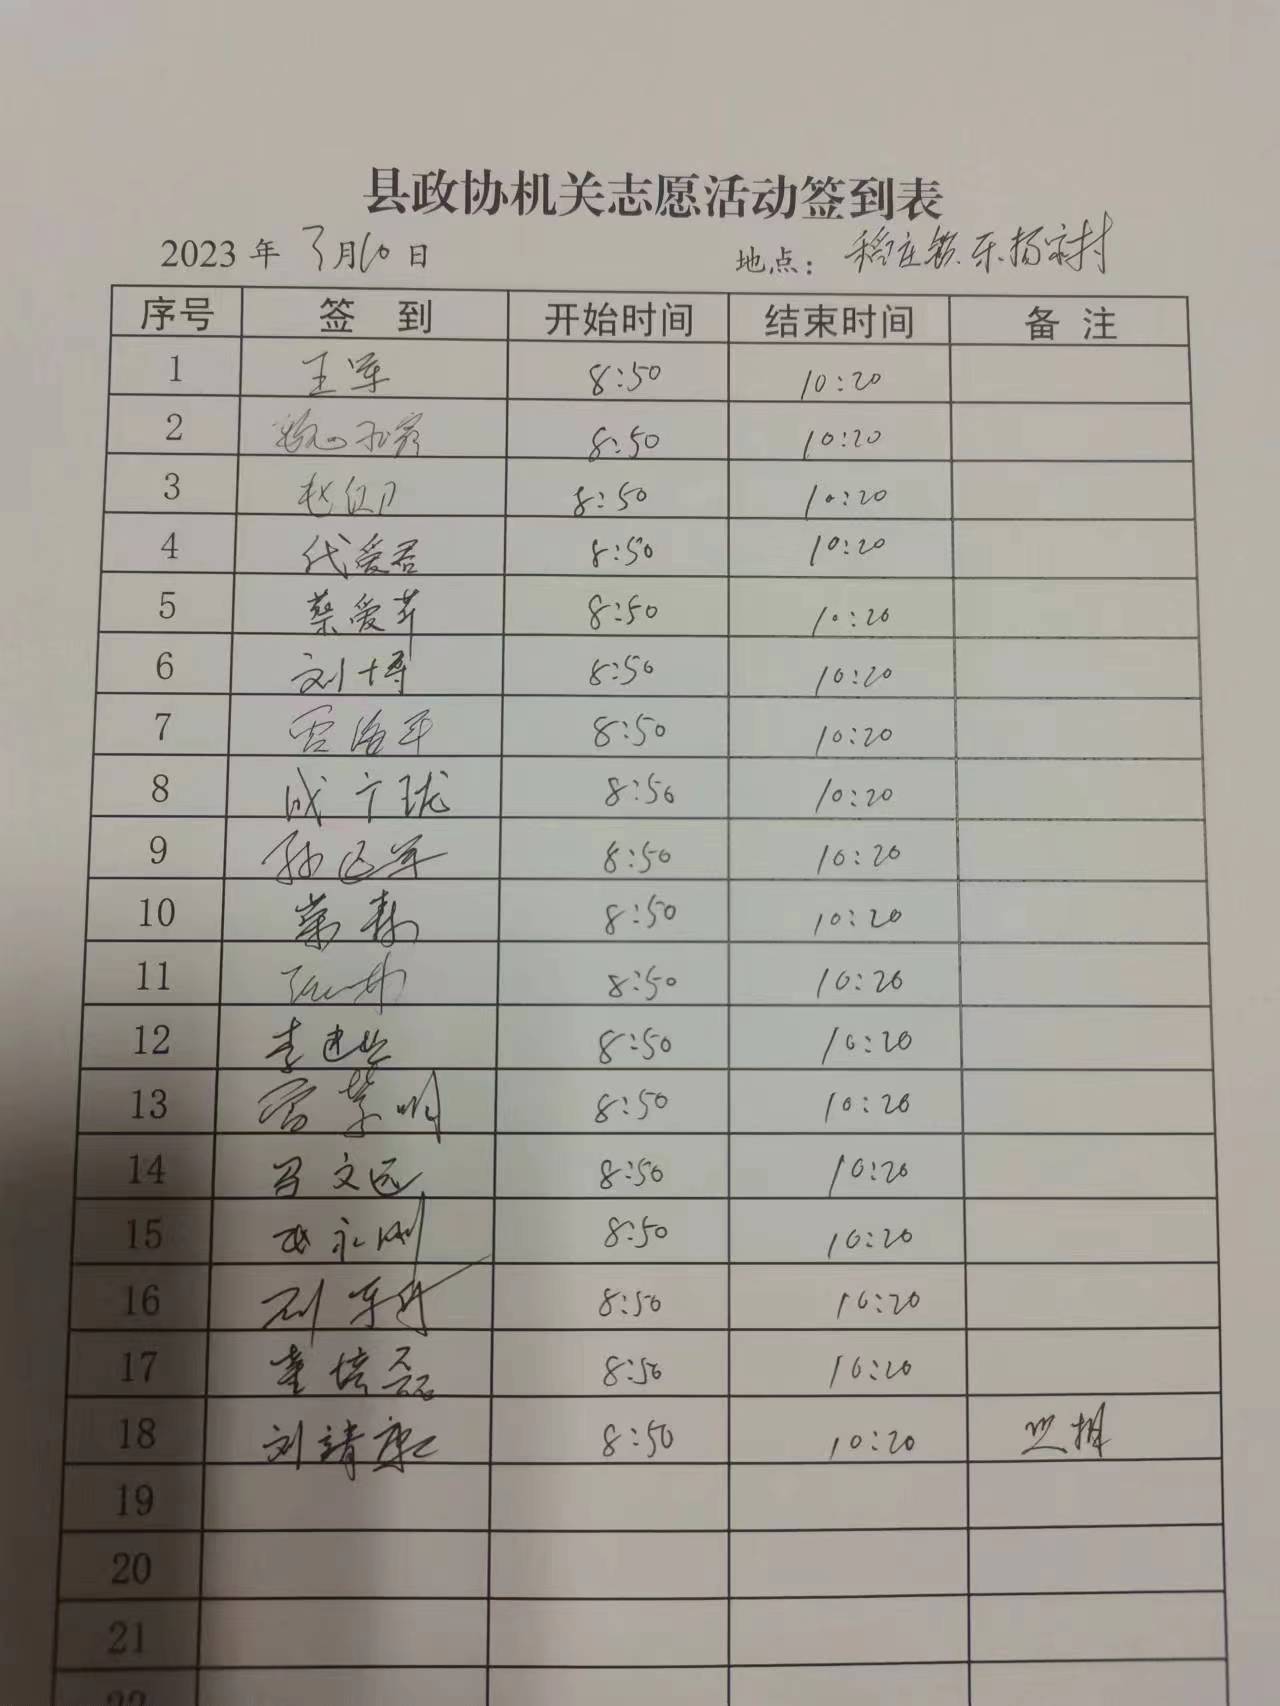 县政协机关志愿活动签到表
2023 年 3月10日 地点： 稳庄镇东杨家村
序号 签 到 开始时间 结束时间 备 注
1 王军 8:50 10:20
2 8:50 10:20
3 赵红卫 8:50 10:20
4 代爱君 8:50 10:20
5 蔡爱苹 8:50 10:20
6 刘博 8:50 10:20
7 贾海平 8:50 10:20
8 成广珑 8:50 10:20
9 孙延军 8:50 10:20
10 8:50 10:20
11 8:50 10:20
12 李建 8:50 10:20
13 8:50 10:20
14 吕文远 8:50 10:20
15 永刚 8:50 10:20
16 刘 8:50 10:20
17 董培磊 8:50 10:20
18 刘靖康 8:50 10:20 照相
19
20
21
22